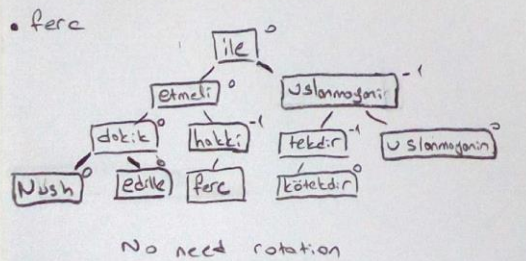 • ferc
ile 0
etmeli 0 uslanmayani -1
dakik 0 hakki -1 tekdir -1 uslanmayanin 0
Nush 0 edille 0 ferc kötekdir 0
No need rotation